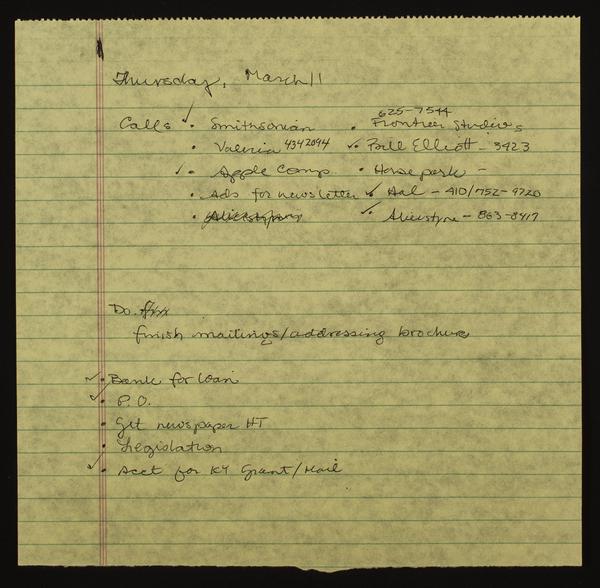 Thursday, March 11
625-7544
Calls ✓ • Smithsonian • Frontier Studios
• Valeria 4342094 ✓• Bill Elliott - 3423
✓ • Apple Comp • Horse park -
• Ads for newsletter ✓ Hal - 410/752-9720
• ✓• - 863-8417
Do.
finish mailings/addressing brochure
✓• Bank for loan
✓• P.O.
• Get newspaper HT
• Legislation
✓• Acct for KY Grant/Mail